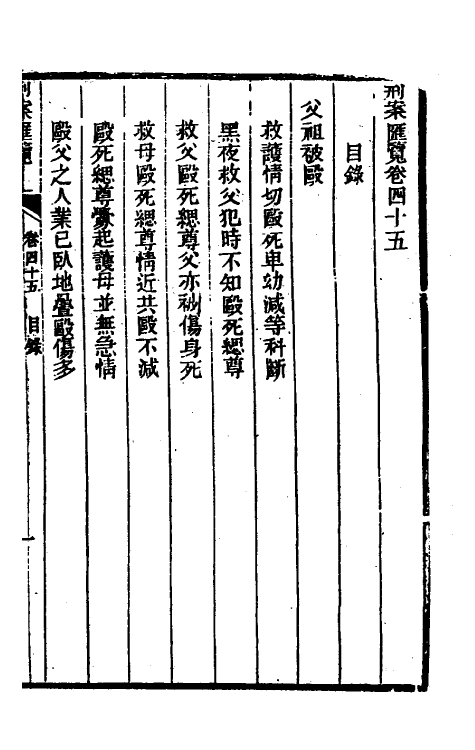 刑案匯覽卷四十五
目錄
父祖被毆
救護情切毆死卑幼減等科斷
黑夜救父犯時不知毆死緦尊
救父毆死緦尊父亦被傷身死
救母毆死緦尊情近共毆不減
毆死緦尊釁起護母並無急情
毆父之人業已臥地疊毆傷多
刑案匯覽 卷四十五 目錄 一